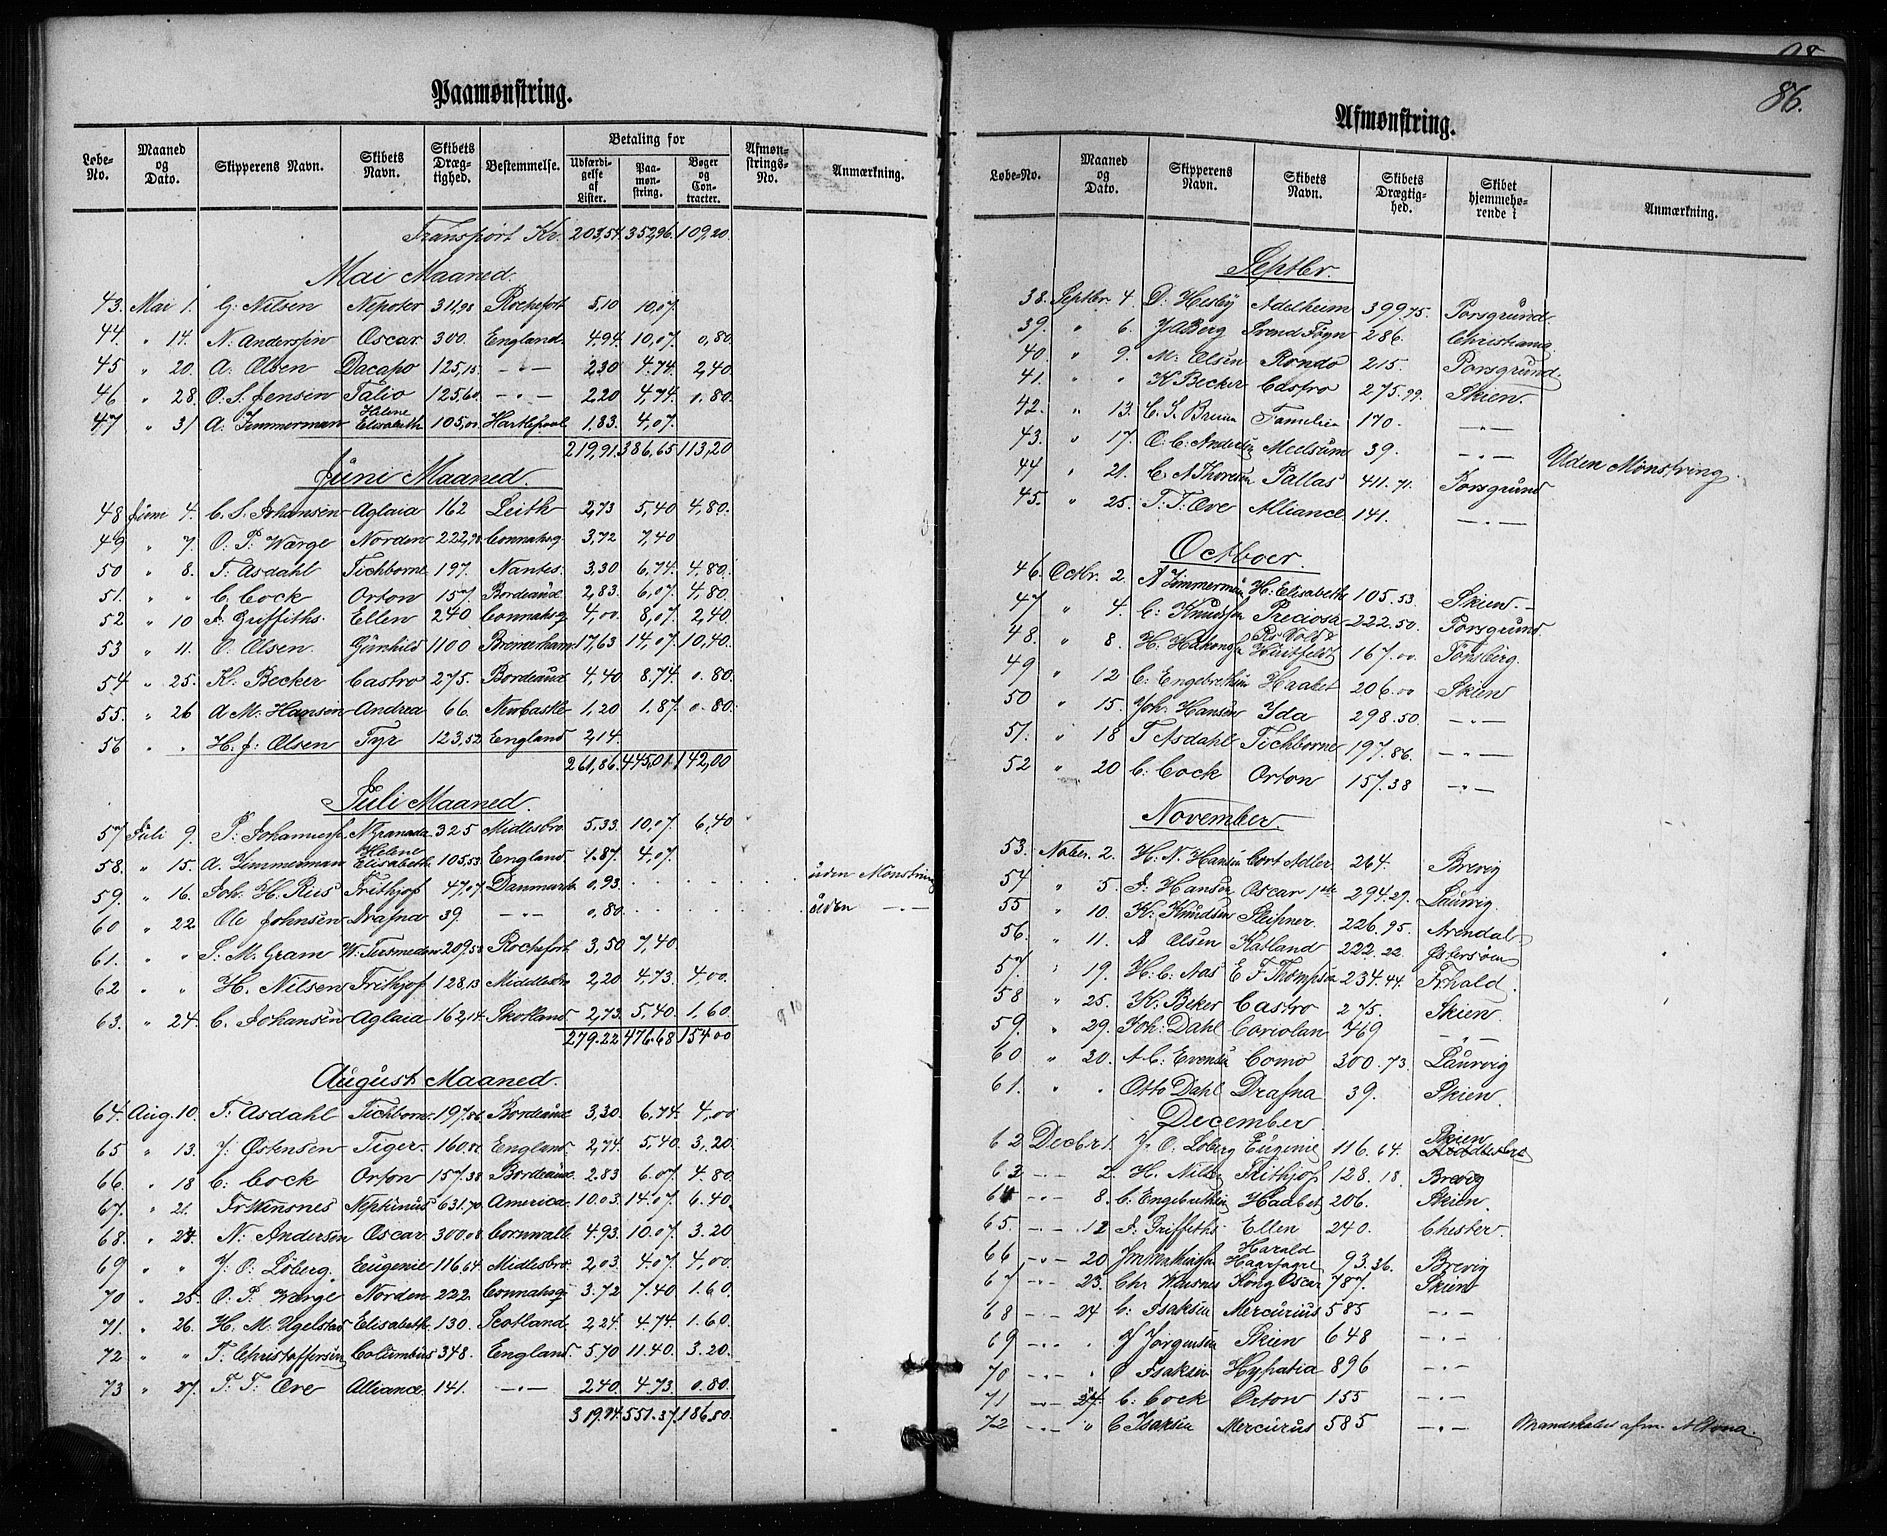 Paamønstring.
Løbe-No. | Maaned og Dato. | Skipperens Navn. | Skibets Navn. | Skibets Dræg-tighed. | Bestemmelse. | Betaling for | Udfærdi-gelse af Lister. | Paa-møn-string. | Bøger og Con-tracter. | Afmøn-strings-No. | Anmærkning.
Transport Kr. 203,54. 352,96. 109,20.
Mai Maaned
43. Mai 1. G. Nilsen Nepoter 311,98 Rochefort 5,10 10,07.
44. " 14. N. Anderssen Oscar 300. England. 494. 10,07. 0,80.
45 " 20. A. Olsen Dacapo 125,15. -"- 230 4.74. 2,40
46 " 28. O. S. Jensen Talio 125,60. -"- 220 4,74. 0.80.
47 " 31 A. Zimmerman Helene Elisabeth 105,01 Hartlepool 1,83. 4,07.
219,91. 386,65 113,20
Juni Maaned.
48 Juni 4. C. S. Johansen Aglaia 162 Leith 2,73 5,40 4,80.
49 " 7. O. P. Wærge Norden 222,98 Connahsq. 3,72 7,40
50 " 8. T. Asdahl Tichborne 197. Nantes. 3,30 6,74. 4,80.
51. " " C. Cock Orton 157. Bordeaux 2,83. 6,07. 4,80.
52 " 10 J. Griffiths. Ellen 240 Connahsq 4,00. 8,07. 2,40
53 " 11. O. Olsen. Gunhild 1100 Bremerham 17,63 14,07. 10,40.
54 " 25. K. Becker Castro 275. Bordeaux 4,40 8,74 0.80.
55. " 26 A. M. Hansen Andrea 66. NewCastle 1,20 1.87. 0.80.
56 " " H. J. Olsen Tyr 123,52 England 214.
261,86. 445,01. 142,00
Juli Maaned.
57 Juli 9. P. Johannes. N Granada 325 Midlesbro 5.33. 10,07 6,40
58. " 15. A. Zimmerman Helene Elisabeth 105,53 England. 1.87. 4,07.
59. " 16. Joh. H. Rus Frithjof 47,07 Danmark 0,93. uden Mønstring
60 " 22 Ole Johnsen Drafna 39. -"- 0,80. uden -"-
61. " " S. M. Gram W. Tersmeden 209,53 Rochefort. 3,50 7,40
62 " " H. Nilsen Frithjof 128,13 Middlesbro 2,20 4,73. 4,00.
63. " 24. C. Johansen Aglaia 162,14 Skotland. 2,73. 5,40. 1,60.
279.22 476.68 154.00
August Maaned.
64. Aug. 10. T. Asdahl Tichborne 197.86 Bordeaux 3,30 6,74. 4,00
65 " 13. J. Østensen Tiger. 160.81 England. 2,74. 5,40. 3,20.
66. " 18 C. Cock Orton 157.38 Bordeaux 2.83 6.07. 4.80
67. " 21. Fr. Winsnes Neptunus 631.70 America. 10.03. 14.07. 6.40.
68. " 24. N. Andersen Oscar. 300.08 Cornwall 4.93. 10.07. 3.20
69 " " J. O. Løberg. Eugenie 116.64 Midlesbro. 2,03. 4.07. 4,00.
70 " 25. O. P. Wærge Norden. 222. Connahsq 3.72 7.40 1.60.
71. " 26. H. M. Ugelstad Elisabeth. 130. Scotland. 2.24. 4.74 1.60.
72 " " T. Christoffersen Columbus 348. England. 5,70 11.40. 3.20.
73 " 27. T. T. Owe Alliance. 141. -"- 2.40. 4.73. 0.80.
319.94. 551.37. 186.50.
86.
Afmønstring.
Løbe-No. | Maaned og Dato. | Skipperens Navn. | Skibets Navn. | Skibets Drægtig-hed. | Skibet hjemmehø-rende i | Anmærkning.
Septbr.
38. Septbr. 4. D. Hesby Adelheim 399.75. Porsgrund.
39. " 6. J A Berg Svend Føyn 286. Christiania
40. " 9. M. Olsen Rondo 215. Porsgrund.
41. " " K Becker Castro 275.99. Skien.
42. " 13. C. S. Bruun Familien 170. -"-
43. " 17. O. C. Andersen Meelsum 39. -"- Uden Mønstring
44 " 21. C. A Thoresen Pallas 411.71. Porsgrund
45. " 25. T. T. Owe Alliance 141. -"-
Octboer.
46. Octbr. 2. A Zimmerman H. Elisabeth 105.53. Skien.
47 " 4. C. Knudsen Preciosa 222.50. Porsgrund.
48. " 8. H. Hakonsen Huitfeldt 167.00. Tønsberg.
49 " 12 C. Engebrethsen Haabet 206.00 Skien
50 " 15. Joh. Hansen Ida 298.50. -"-
51. " 18 T Asdahl Tichborne 197.86. -"-
52 " 20 C. Cock Orton 157.38 -"-
November.
53. Novbr. 2. H. N. Hansen Cort Adler 264. Brevig
54 " 5. J. Hansen Oscar 1ste 294.29. Laurvig.
55 " 10. K. Knudsen Sleipner 226.95. Arendal
56. " 11. A Olsen Katland 222.22. Østersøen
57. " 19. H. C. Aas E F Thompson 234.44. Frhald.
58 " 25. K. Beker Castro 275. Skien.
59. " 29. Joh. Dahl Coriolan 769 -"-
60 " 20. A. C. Evensen Como 300.73. Laurvig
61. " " Otto Dahl Drafna 39. Skien.
December.
62 Decbr 1. J. O. Løberg Eugenie 116.64. Skien
63 -"- 2. H. Nilsen Frithjof 128.18. Brevig
64 -"- 8. C. Engebrethsen Haabet 206. Skien.
65. -"- 12 J. Griffiths Ellen 240. Chester.
66 -"- 20 Harald Haarfagre 93.36. Brevig
67 -"- 23. Chr. Winsnes Kong Oscar 787. Skien
68 -"- 24 C. Isaksen Mercurius 585 -"-
69 -"- " J Jørgensen Skien 648 -"-
70 -"- " O Isaksen Hypatia 896 -"-
71 -"- 27. C. Cock Orton 155 -"-
72 -"- " C Isaksen Mercurius 585 -"- Mandskabet afm. Altona.